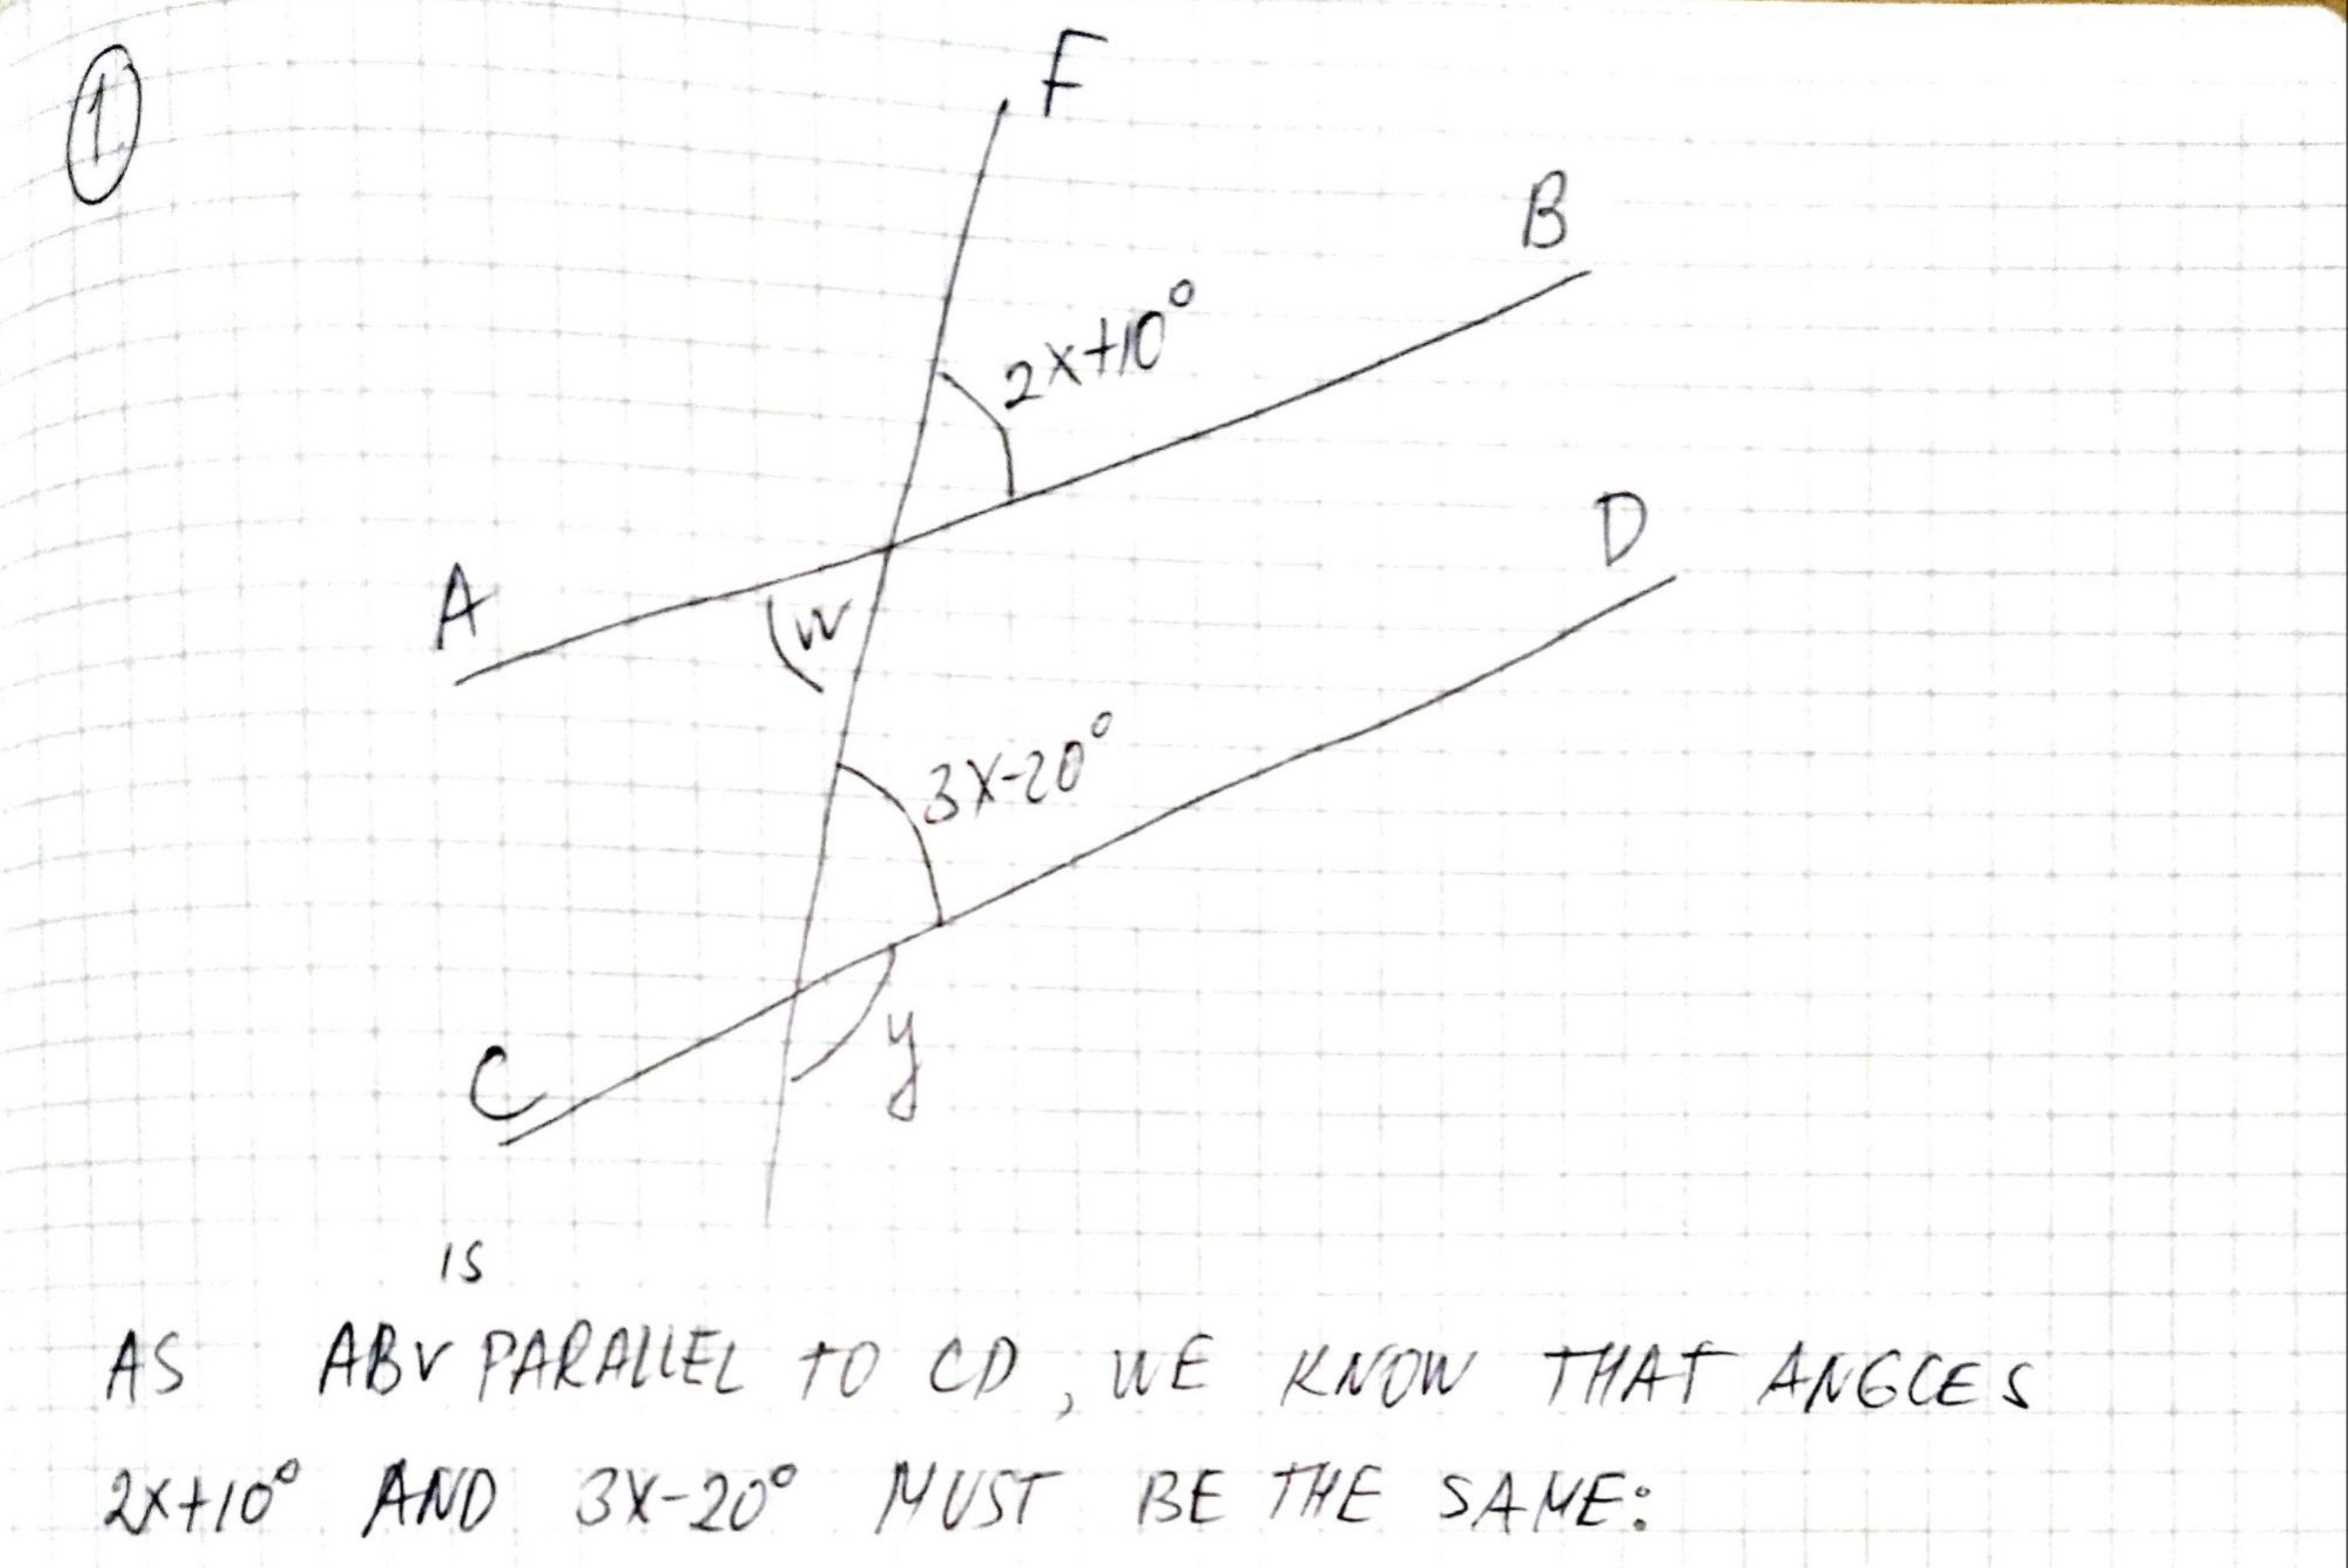 1
F
B
2x+10°
D
A
W
3x-20°
C
y
is
AS AB PARALLEL TO CD, WE KNOW THAT ANGLES
2x+10° AND 3x-20° MUST BE THE SAME: